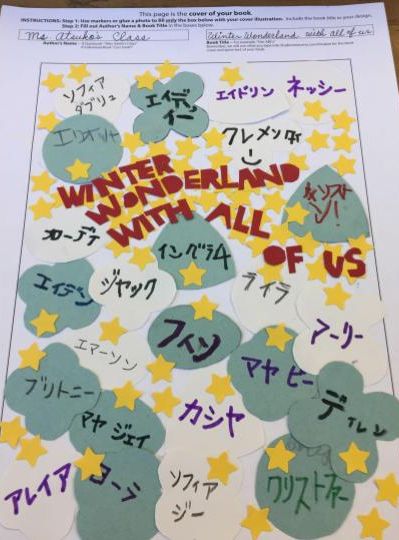 This page is the cover of your book.
INSTRUCTIONS: Step 1: Use markers or glue a photo to fill only the box below with your cover illustration. Include the book title in your design.
Step 2: Fill out Author's Name & Book Title in the boxes below.
Ms. Atsuko's Class
Winter Wonderland with all of us
Author's Name
Book Title
ソフィア
ダブリュ
エイデ
イー
エイドリン
ネッシー
エリオット
クレメンタイ
WINTER
WONDERLAND
WITH ALL
OF US
カローデテ
イングラム
エイデン
ジャック
ライラ
フィン
アーリー
エマーソン
マヤ ビー
ブリトニー
カシヤ
ディレン
マヤ ジェイ
アレイア
ヨーシ
ソフィア
ジー
クリストファー